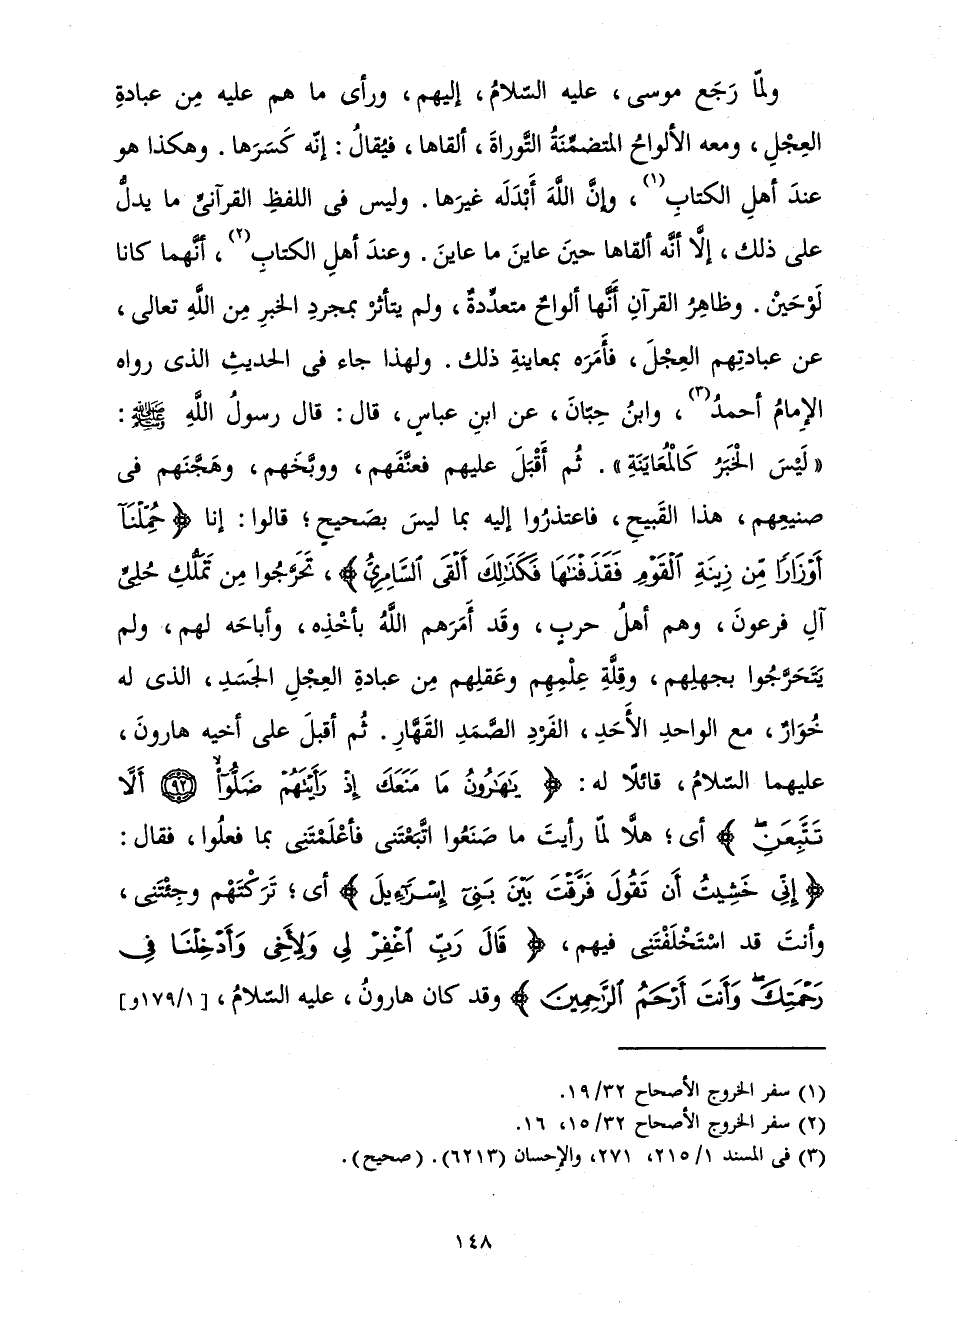 ولمّا رَجَع موسى ، عليه السّلامُ ، إليهم ، ورأى ما هم عليه مِن عبادةِ
العِجْلِ ، ومعه الألواحُ المتضمِّنَةُ التَّوراةَ ، ألقاها ، فيُقالُ : إنّه كَسَرَها . وهكذا هو
عندَ أهلِ الكتابِ(١) ، وإنَّ اللَّهَ أَبْدَلَه غيرَها . وليس فى اللفظِ القرآنىِّ ما يدلُّ
على ذلك ، إلَّا أنَّه ألقاها حينَ عاينَ ما عاينَ . وعندَ أهلِ الكتابِ(٢) ، أنَّهما كانا
لَوْحَيْنْ . وظاهِرُ القرآنِ أنَّها ألواحٌ متعدِّدةٌ ، ولم يتأثرْ بمجردِ الخبرِ مِن اللَّهِ تعالى ،
عن عبادتِهم العِجْلَ ، فأَمَرَه بمعاينةِ ذلك . ولهذا جاء فى الحديثِ الذى رواه
الإمامُ أحمدُ(٣) ، وابنُ حِبّانَ ، عن ابنِ عباسٍ ، قال : قال رسولُ اللَّهِ ﷺ :
«لَيْسَ الْخَبَرُ كَالْمُعَايَنَةِ» . ثُم أَقْبَلَ عليهم فعنَّفَهم ، ووبَّخَهم ، وهَجَّنَهم فى
صنيعِهم ، هذا القَبيحِ ، فاعتذرُوا إليه بما ليسَ بصَحيحٍ ؛ قالوا : إنا ﴿ حُمِّلْنَآ
أَوْزَارًا مِّن زِينَةِ ٱلْقَوْمِ فَقَذَفْنَٰهَا فَكَذَٰلِكَ أَلْقَى ٱلسَّامِرِىُّ ﴾ ، تَحَرَّجُوا مِن تَمَلُّكِ حُلِىِّ
آلِ فرعونَ ، وهم أهلُ حربٍ ، وقَد أَمَرَهم اللَّهُ بأخْذِه ، وأباحَه لهم ، ولم
يَتَحَرَّجُوا بجهلِهم ، وقِلَّةِ عِلْمِهم وعَقلِهم مِن عبادةِ العِجْلِ الجَسَدِ ، الذى له
خُوَارٌ ، مع الواحدِ الأَحَدِ ، الفَرْدِ الصَّمَدِ القَهَّارِ . ثُم أقبلَ على أخيه هارونَ ،
عليهما السّلامُ ، قائلًا له : ﴿ يَٰهَٰرُونُ مَا مَنَعَكَ إِذْ رَأَيْتَهُمْ ضَلُّوٓا۟ ۙ ﴿٩٢﴾ أَلَّا
تَتَّبِعَنِ ۖ ﴾ أى ؛ هلَّا لمّا رأيتَ ما صَنَعُوا اتَّبَعْتَنى فأعْلَمْتَنِى بما فعلُوا ، فقال :
﴿ إِنِّى خَشِيتُ أَن تَقُولَ فَرَّقْتَ بَيْنَ بَنِىٓ إِسْرَٰٓءِيلَ ﴾ أى ؛ تَرَكْتَهُم وجِئْتَنِى ،
وأنتَ قد اسْتَخْلَفْتَنِى فيهم ، ﴿ قَالَ رَبِّ ٱغْفِرْ لِى وَلِأَخِى وَأَدْخِلْنَا فِى
رَحْمَتِكَ ۖ وَأَنتَ أَرْحَمُ ٱلرَّٰحِمِينَ ﴾ وقد كان هارونُ ، عليه السّلامُ ، [١/١٧٩و]
(١) سفر الخروج الأصحاح ٣٢/ ١٩.
(٢) سفر الخروج الأصحاح ٣٢/ ١٥، ١٦.
(٣) فى المسند ١/ ٢١٥، ٢٧١، والإحسان (٦٢١٣). (صحيح).
١٤٨